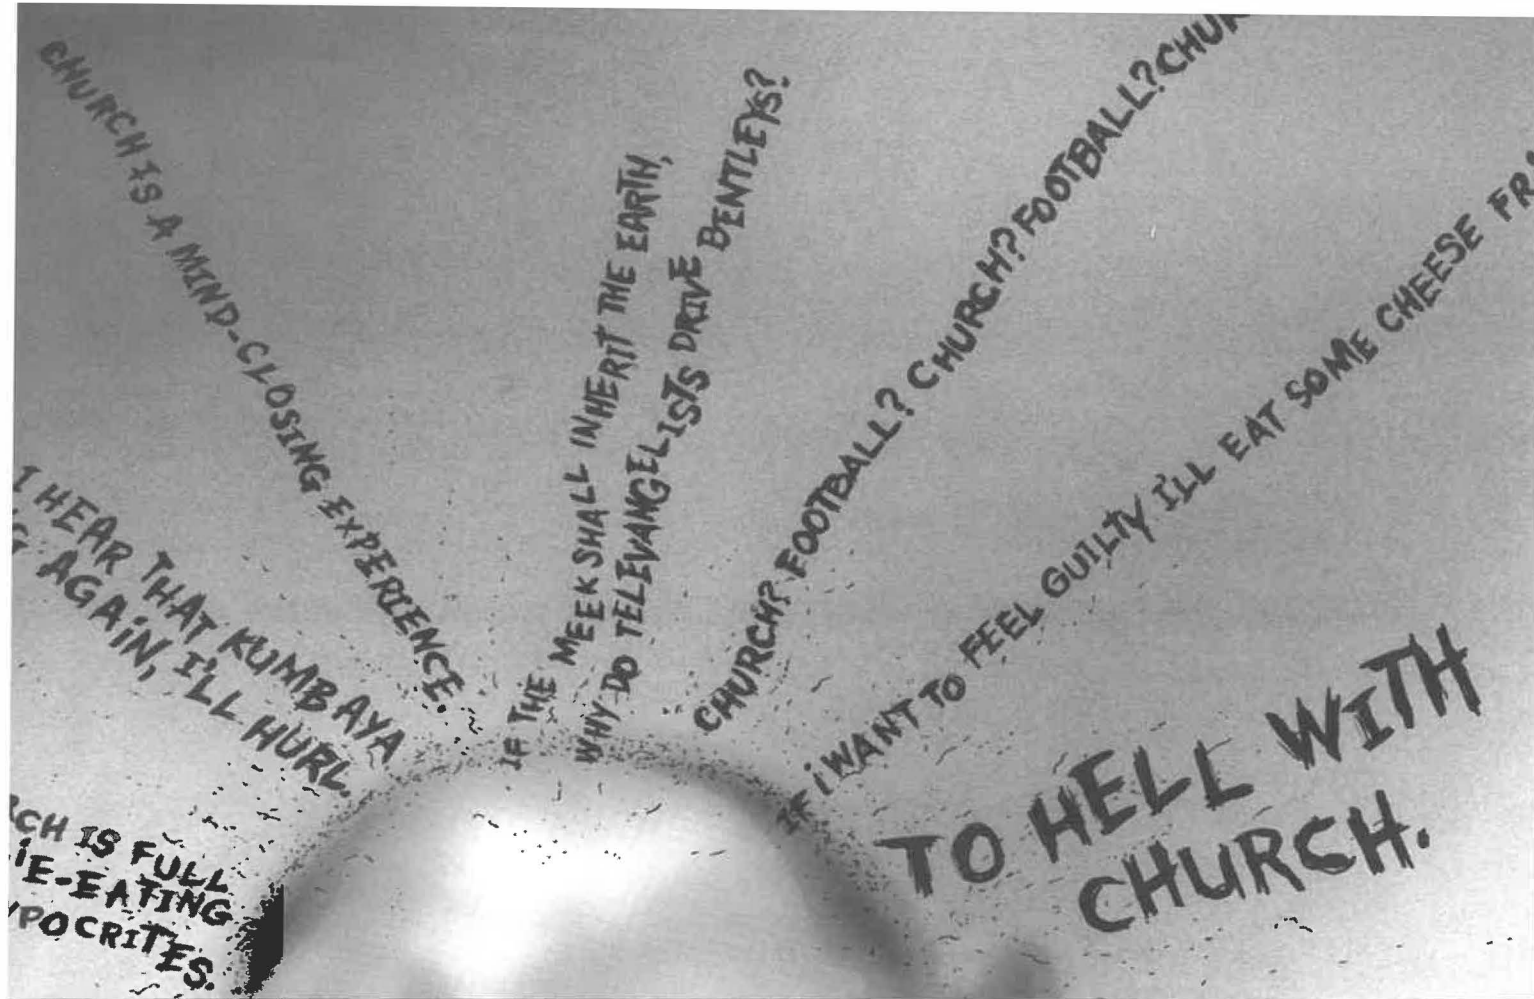 CHURCH IS A MIND-CLOSING EXPERIENCE.
I HEAR THAT KUMBAYA
AGAIN, I'LL HURL.
IS FULL
-EATING
IF THE MEEK SHALL INHERIT THE EARTH,
WHY DO TELEVANGELISTS DRIVE BENTLEYS?
CHURCH? FOOTBALL? CHURCH? FOOTBALL? CHUR
IF I WANT TO FEEL GUILTY I'LL EAT SOME CHEESE
TO HELL WITH
CHURCH.